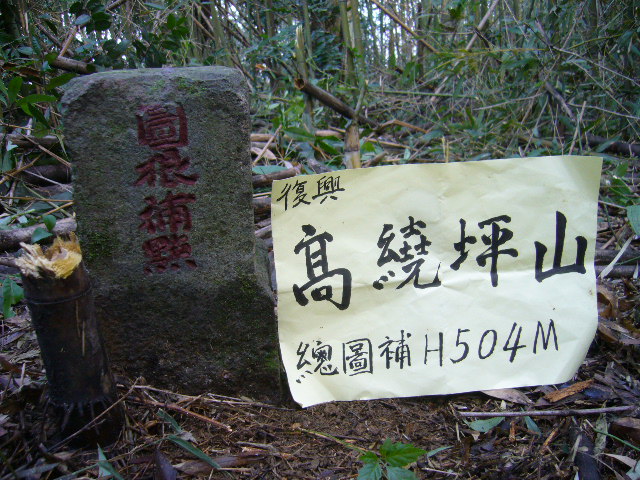 圖根補點
復興
高繞坪山
總圖補H504M